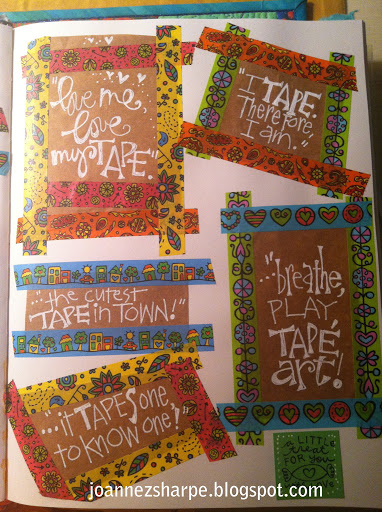 "love me,
love
my TAPE."
"I TAPE.
Therefore,
I am."
"...the cutest
TAPE in TOWN!"
"...breathe,
PLAY
TAPÉ
art!
"...it TAPES one
to KNOW one!"
A LITTLE
treat
FOR YOU
joannezsharpe.blogspot.com